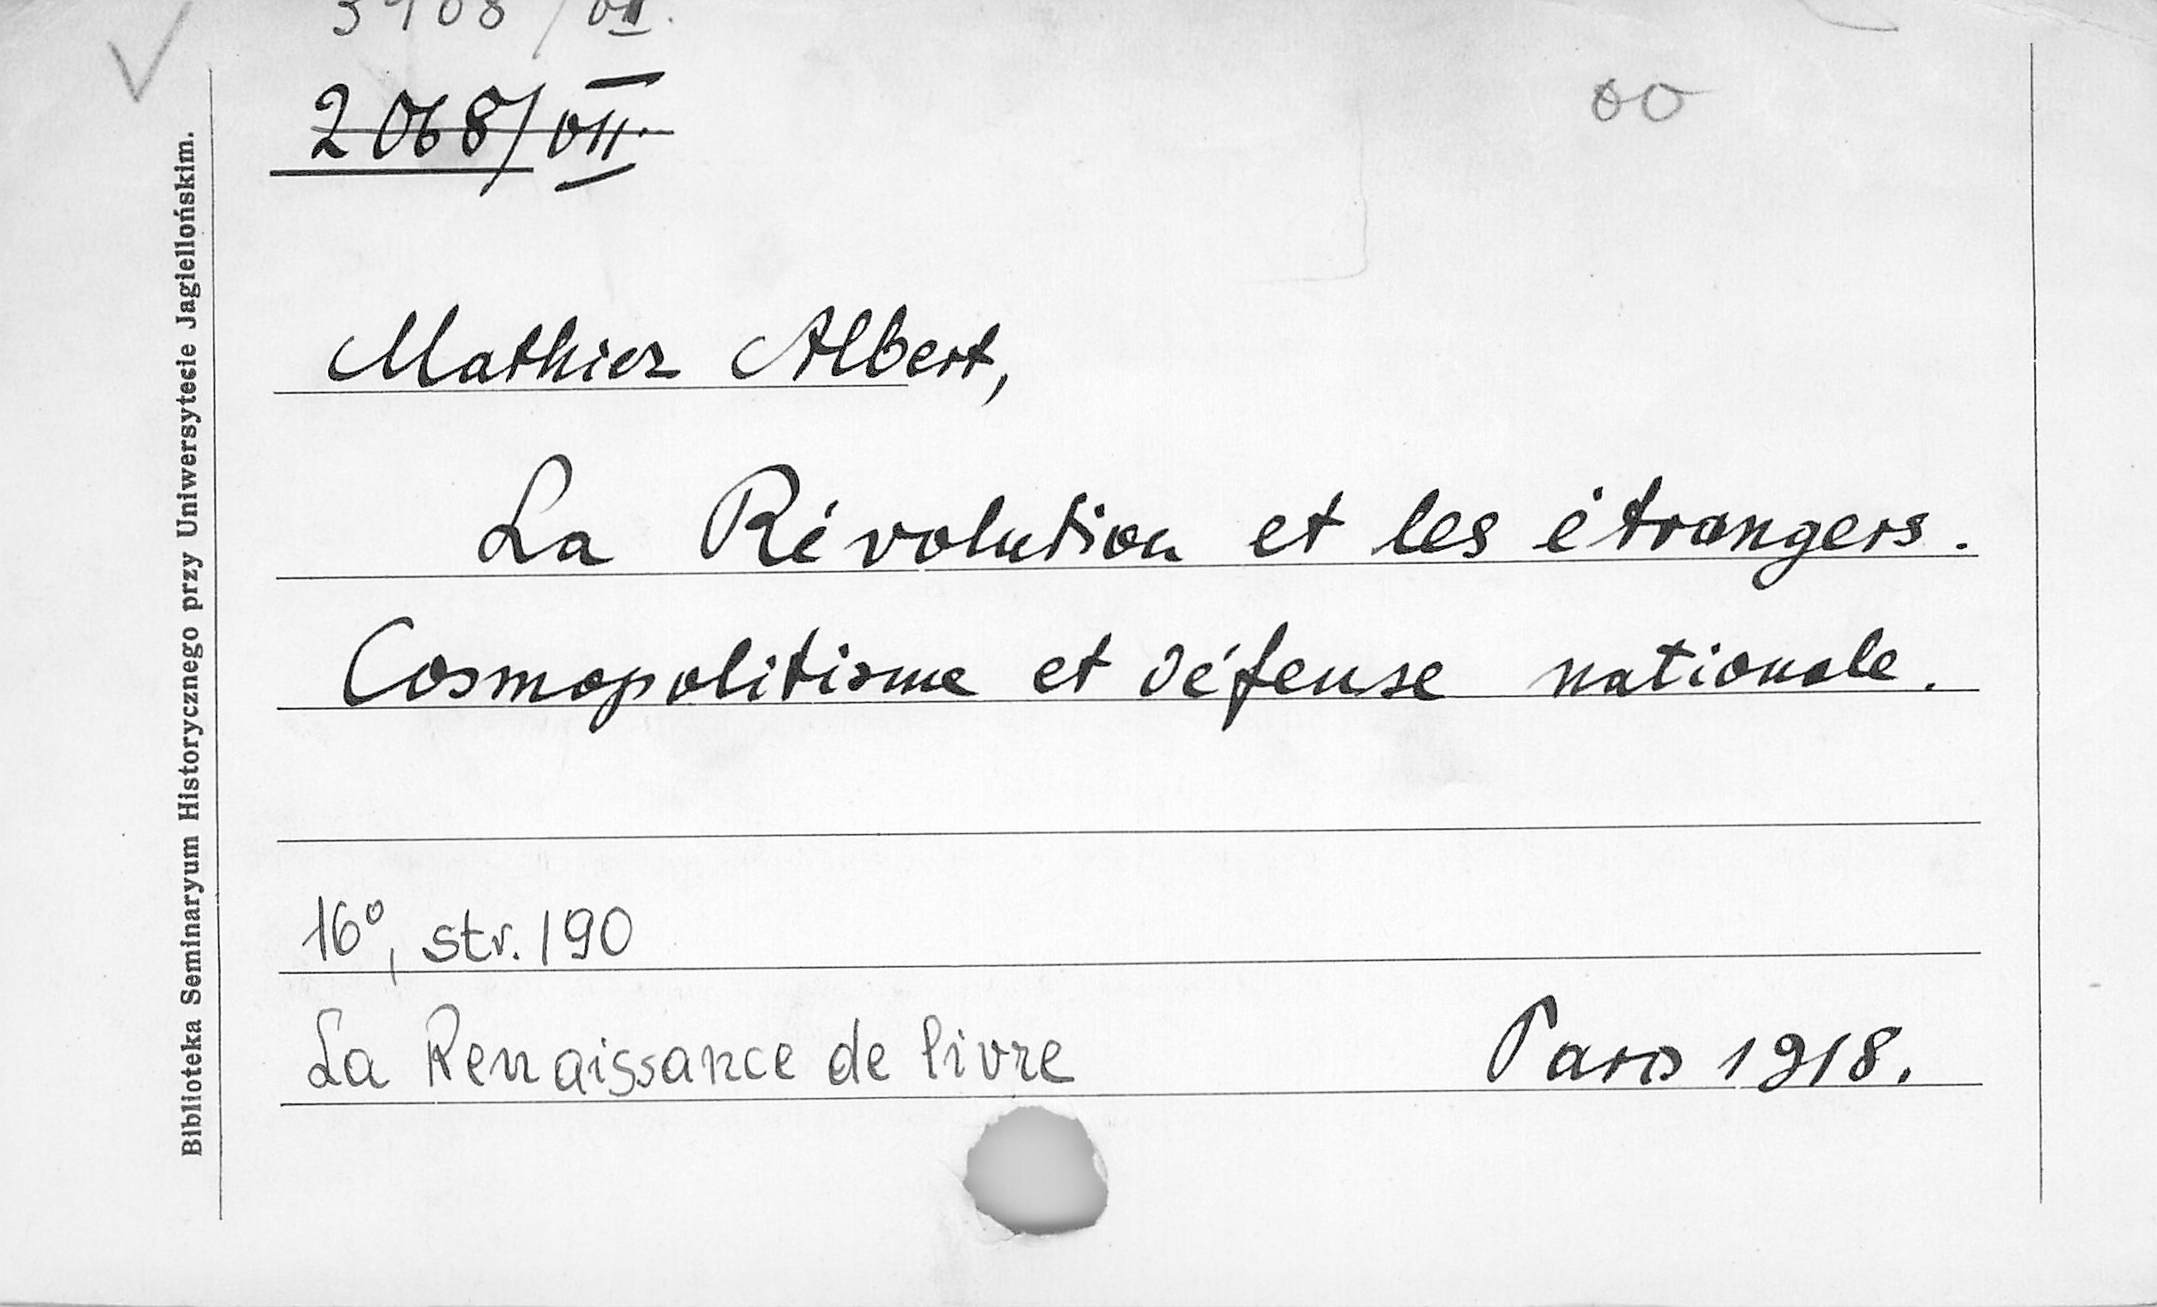 2068/VII.
00
Mathiez Albert,
La Révolution et les étrangers.
Cosmopolitisme et défense nationale.
16°, str. 190
La Renaissance de livre Paris 1918.
Biblioteka Seminaryum Historycznego przy Uniwersytecie Jagiellońskim.